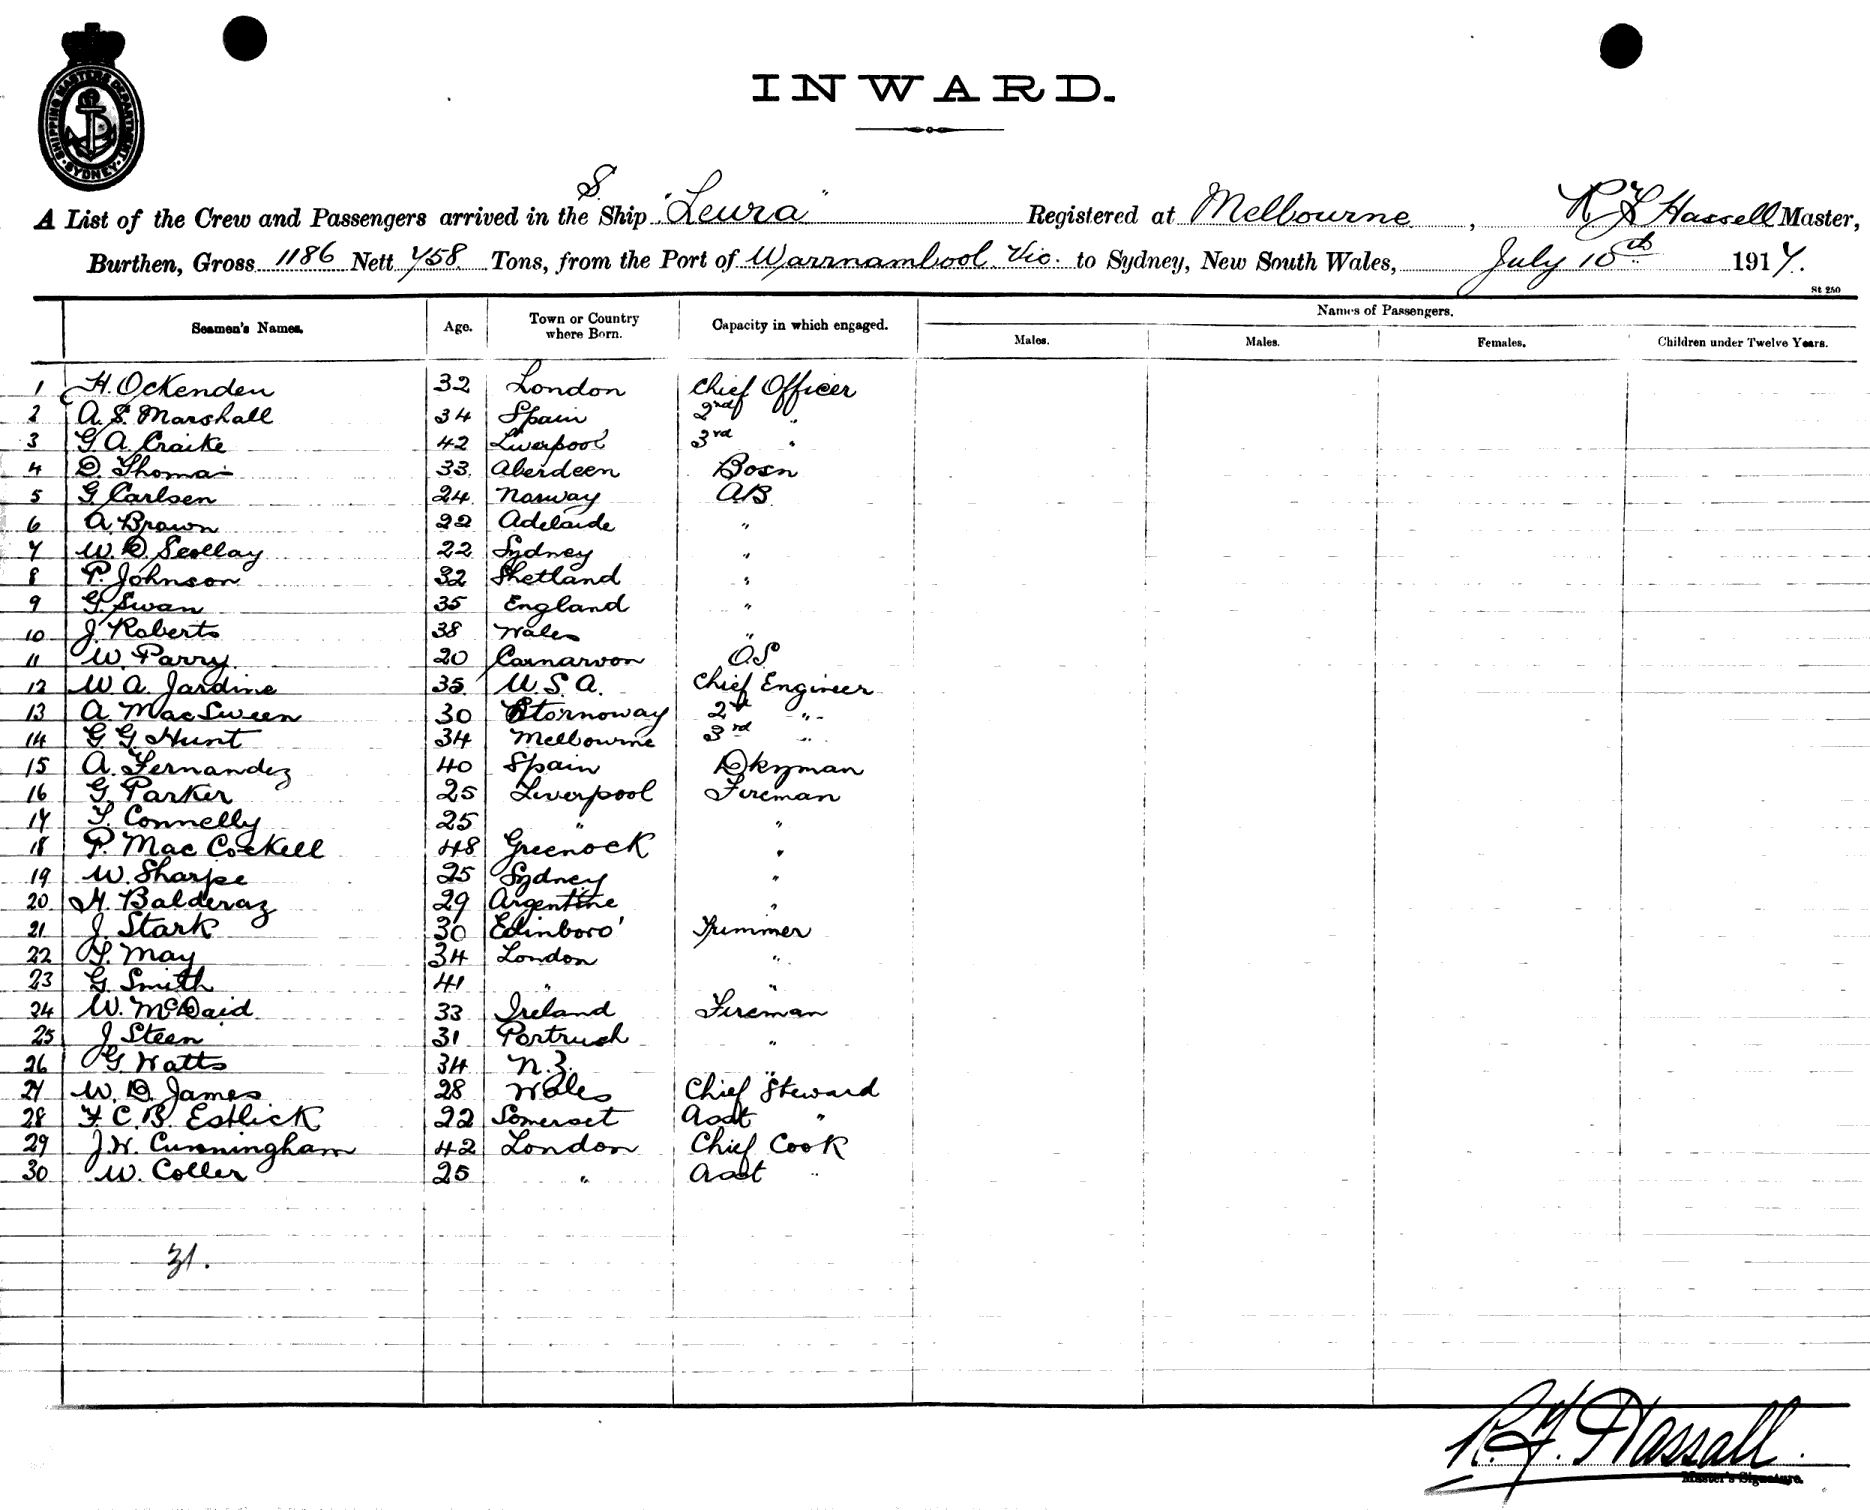 SHIPPING MASTERS DEPARTMENT · SYDNEY ·
INWARD.
A List of the Crew and Passengers arrived in the S. Ship "Leura" Registered at Melbourne, R F Hassell Master,
Burthen, Gross 1186 Nett 758 Tons, from the Port of Warrnambool Vic. to Sydney, New South Wales, July 10th 1917.
St 250
Seamen's Names. Age. Town or Country where Born. Capacity in which engaged. Names of Passengers.
Males. Males. Females. Children under Twelve Years.
1 H. Ockenden 32 London Chief Officer
2 A. S. Marshall 34 Spain 2nd "
3 G A Craike 42 Liverpool 3rd "
4 D. Thomas 33 Aberdeen Bosn
5 G Carlsen 24 Norway AB
6 A Brown 22 Adelaide "
7 W. D. Scollay 22 Sydney "
8 P. Johnson 32 Shetland "
9 G. Swan 35 England "
10 J. Roberts 38 Wales "
11 W. Parry 20 Carnarvon OS
12 W A. Jardine 35 U. S. A. Chief Engineer
13 A. MacSween 30 Stornoway 2d "
14 G G Hunt 34 Melbourne 3rd "
15 A. Fernandez 40 Spain Dkyman
16 G Parker 25 Liverpool Fireman
17 T. Connelly 25 " "
18 P. Mac Cockell 48 Greenock "
19 W. Sharpe 25 Sydney "
20 H. Balderaz 29 Argentine "
21 J Stark 30 Edinboro' Trimmer
22 T. May 34 London "
23 G Smith 41 " "
24 W. McDaid 33 Ireland Fireman
25 J Steen 31 Portrush "
26 G Watts 34 N.Z. "
27 W. D. James 28 Wales Chief Steward
28 F. C. B. Estlick 22 Somerset Asst "
29 J. H. Cunningham 42 London Chief Cook
30 W. Coller 25 " Asst "
31.
R. F. Hassall
Master's Signature.